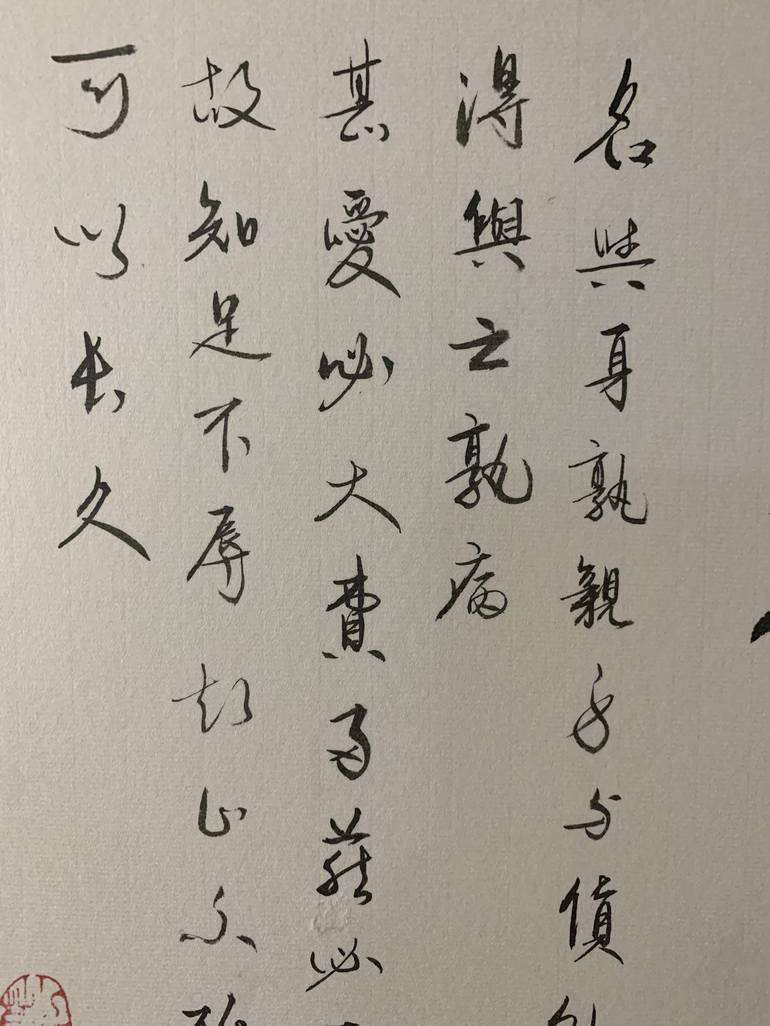 名與身孰親身与貨
得與亡孰病
甚愛必大費多藏必
故知足不辱知止不
可以長久